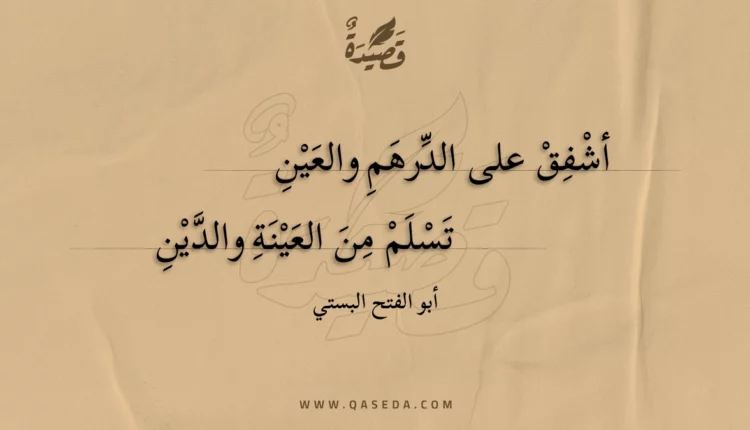 قَصِيدَةٌ
أشْفِقْ على الدِّرهَمِ والعَيْنِ
تَسْلَمْ مِنَ العَيْنَةِ والدَّيْنِ
أبو الفتح البستي
WWW.QASEDA.COM